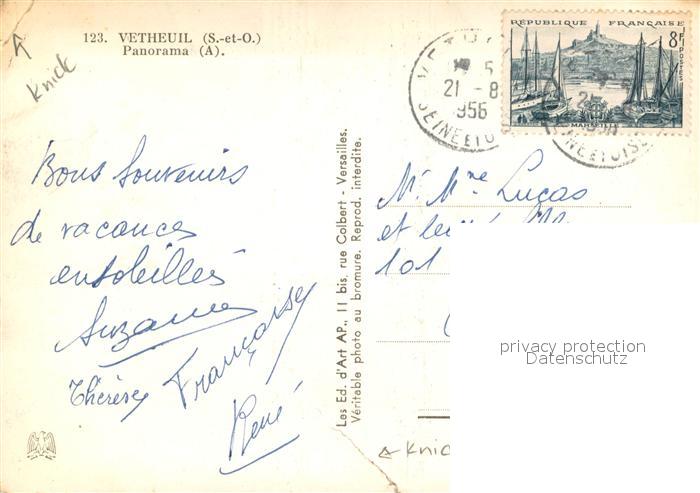 123. VETHEUIL (S.-et-O.)
Panorama (A).
Knick
Bons souvenirs
de vacances
ensoleillés
Suzanne
Françoise
Thérèse
René
Les Ed. d'Art AP., 11 bis, rue Colbert - Versailles.
Véritable photo au bromure. Reprod. interdite.
RÉPUBLIQUE FRANÇAISE
8F
POSTES
MARSEILLE
21 -8
1956
SEINE ET OISE
SEINE ET OISE
Mr. Mme Lucas
et
101
privacy protection
Datenschutz
Knic